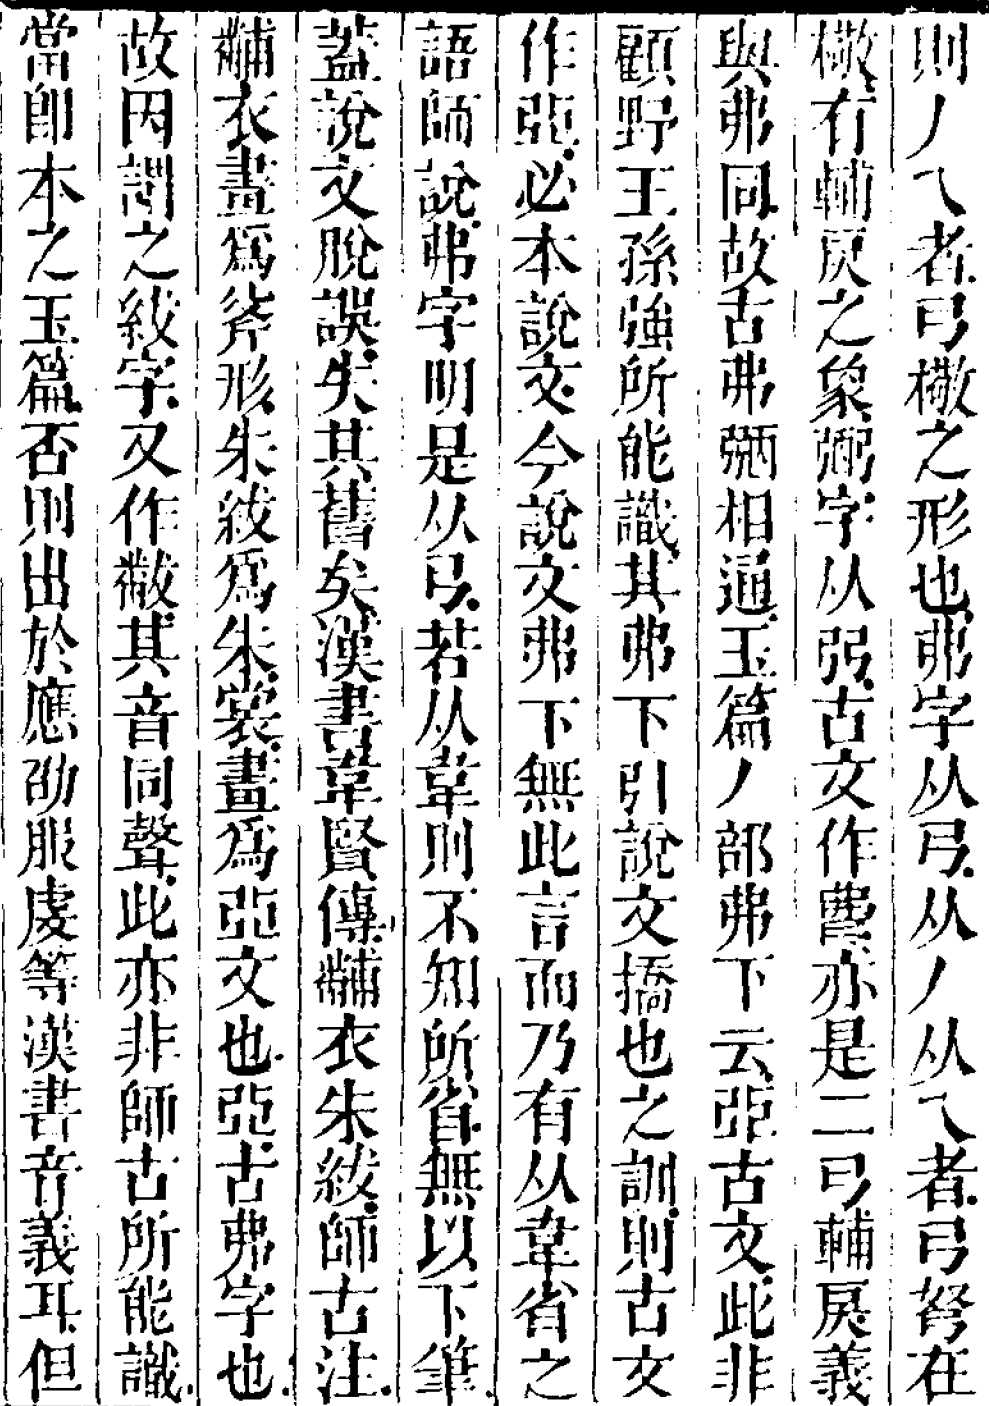 則丿乀者弓檄之形也弗字从弓从丿从乀者弓弩在
檄有輔戾之象弼字从弜古文作㢸亦是二弓輔戾義
與弗同故古弗弼相通玉篇丿部弗下云亞古文此非
顧野王孫強所能識其弗下引說文撟也之訓則古文
作亞必本說文今說文弗下無此言而乃有从韋省之
語師說弗字明是从弓若从韋則不知所省無以下筆
葢說文脫誤失其舊矣漢書韋賢傳黼衣朱紱師古注
黼衣畫爲斧形朱紱爲朱裳畫爲亞文也亞古弗字也
故因謂之紱字又作黻其音同聲此亦非師古所能識
當卽本之玉篇否則出於應劭服虔等漢書音義耳但